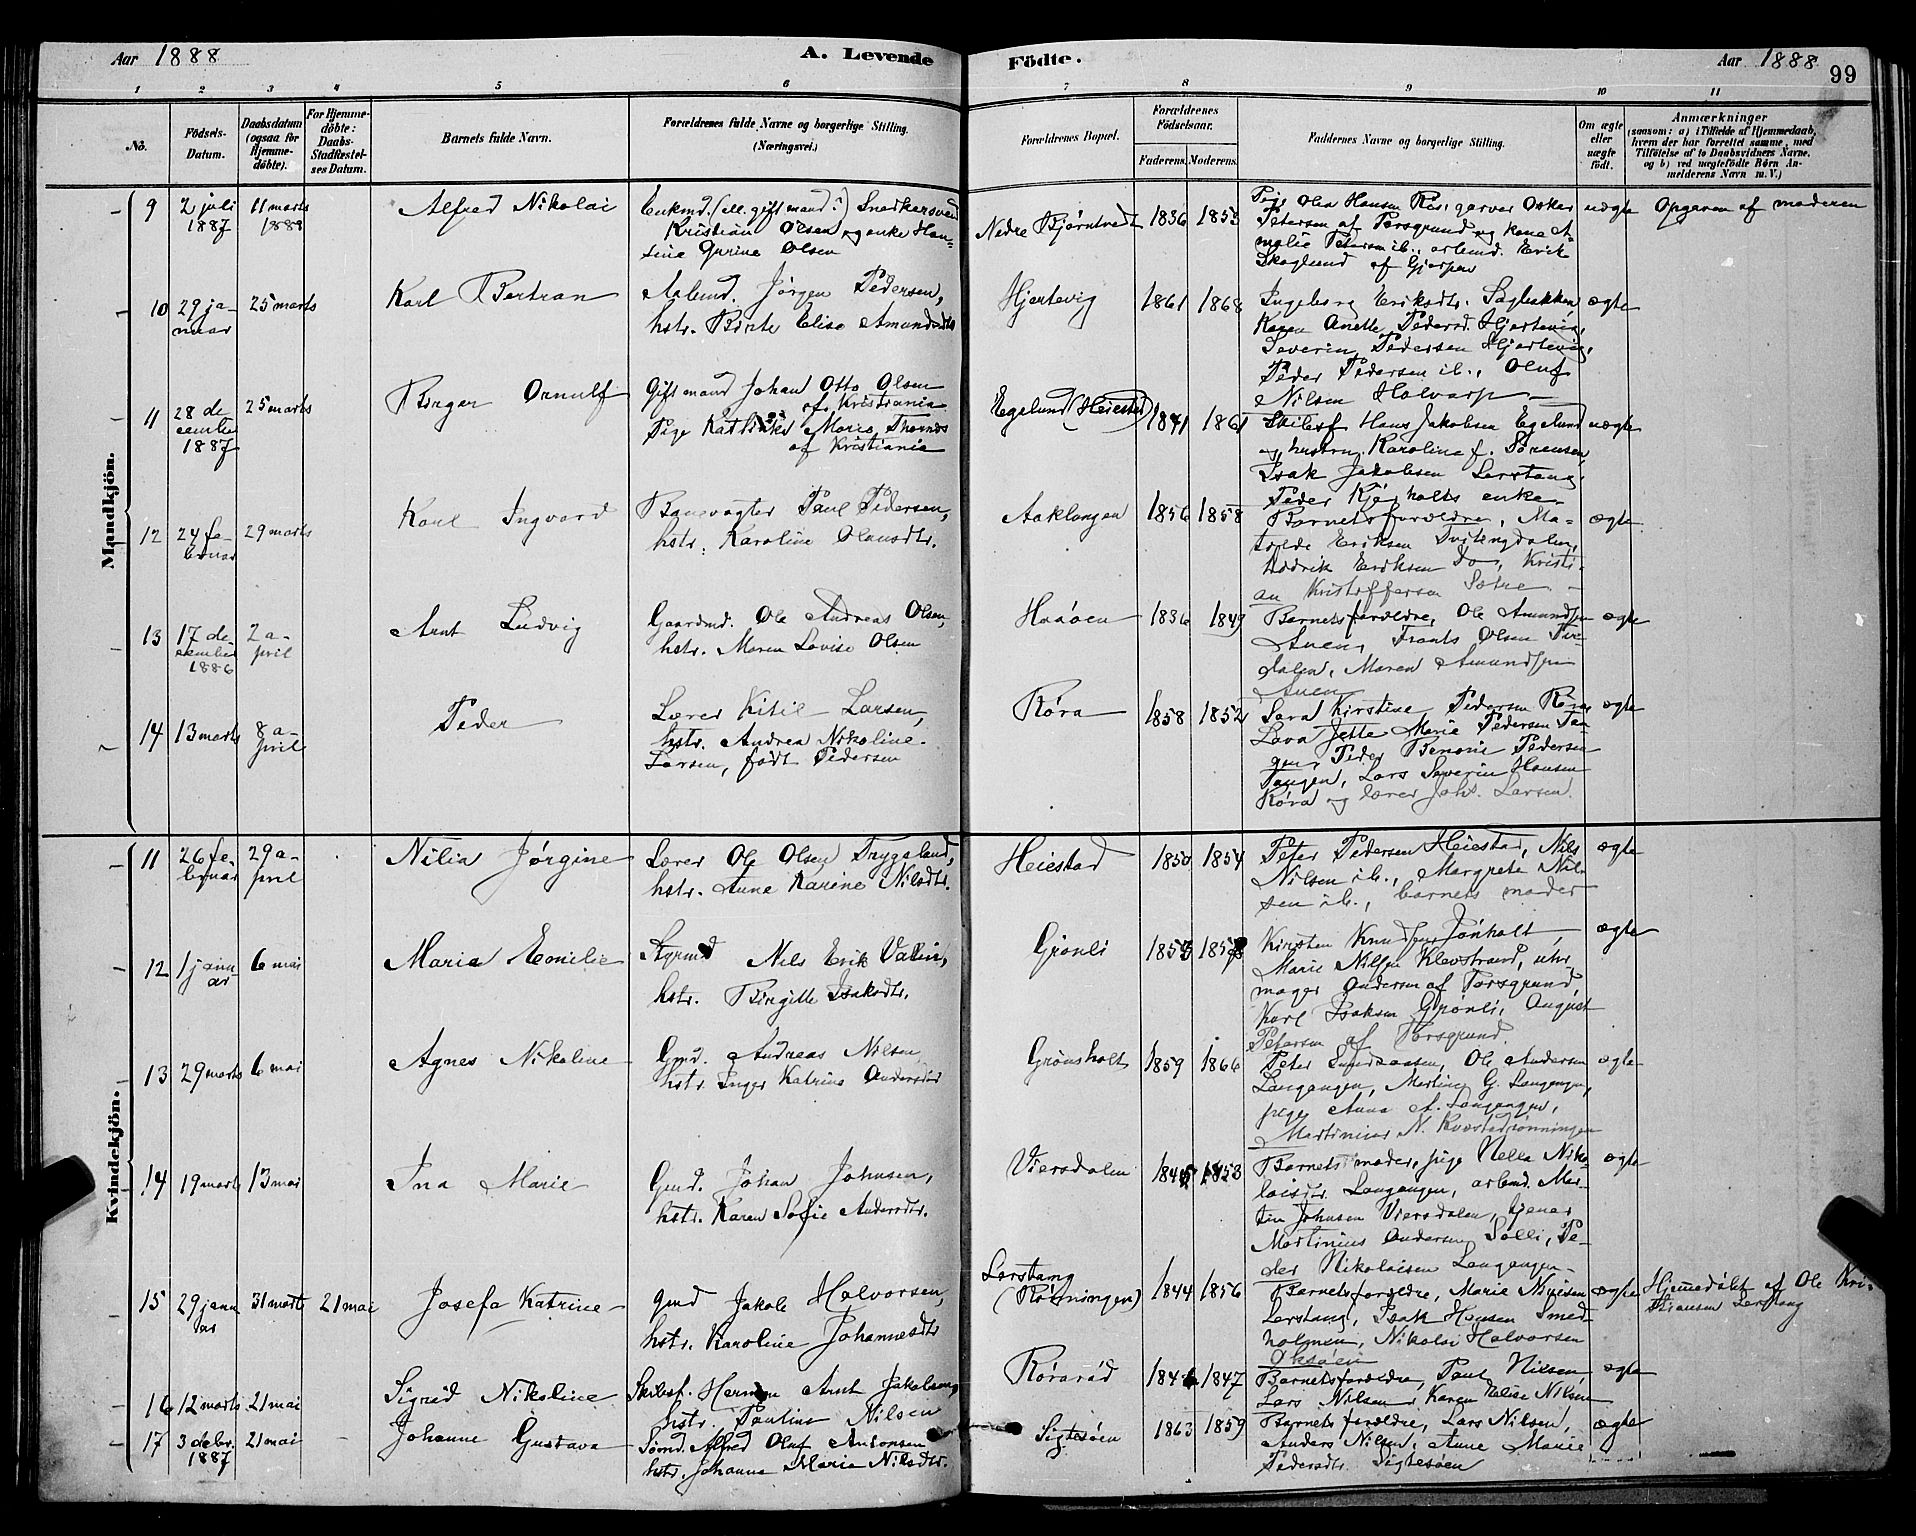 Aar 1888
A. Levende
Födte.
Aar 1888
99
1 2 3 4 5 6 7 8 9 10 11
No.
Födsels-Datum.
Daabsdatum (ogsaa for Hjemme-döbte).
For Hjemme-döbte: Daabs-Stadfæstel-ses Datum.
Barnets fulde Navn.
Forældrenes fulde Navne og borgerlige Stilling. (Næringsvei.)
Forældrenes Bopæl.
Forældrenes Födselsaar.
Faderens. Moderens.
Faddernes Navne og borgerlige Stilling.
Om ægte eller uægte födt.
Anmærkninger
(saasom: a) i Tilfælde af Hjemmedaab, hvem der har forrettet samme, med Tilföielse af to Daabsvidners Navne, og b) ved uægtefödte Børn An-melderens Navn m. V.)
Mandkjön.
9 2 juli 1887 11 marts 1888 Alfred Nikolai
Enkmd. (ell. gift mand?) Snedkersvend
Kristian Olsen og enke Han-
sine Gurine Olsen
Nedre Bjørntvedt 1836 1853
Pige Olea Hansen Ræs, garver Oskar
Petersen af Porsgrund og kone A-
malie Petersen ib., arbmd. Erik
Skoglund af Gjerpen
uægte Opgaven af moderen
10 29 ja-nuar 25 marts Karl Bertran
Arbmd. Jørgen Pedersen,
hstr. Birte Elise Amundsdtr
Hjertevig 1861 1868
Ingeborg Eriksdtr. Sagbakken,
Karen Anette Pedersd. Hjertevig,
Severin Pedersen Hjertevig,
Peder Pedersen ib., Oluf
Nilsen Halvarp
ægte
11 28 de-cember 1887 25 marts Birger Ornulf
Gift mand Johan Otto Olsen
af Kristiania
Pige Katinka Marie Thornæs
af Kristiania
Egelund (Heiestad) 1841 1861
Skibsf. Hans Jakobsen Egelund
og hustru Karoline f. Sørensen,
Isak Jakobsen Lerstang,
Peder Kjørholts enke
uægte
12 24 fe-bruar 29 marts Karl Ingvard
Banevogter Paul Pedersen,
hstr. Karoline Olausdtr.
Aaklungen 1856 1858
Barnets forældre, Ma-
tilde Eriksen
Hedrik Eriksen Do, Kristi-
an Kristoffersen Sætre
ægte
13 17 de-cember 1886 2 a-pril Arnt Ludvig
Gaardmd. Ole Andreas Olsen,
hstr. Maren Lovise Olsen
Haaøen 1836 1849
Barnets forældre, Ole Amundsen
Auen, Frants Olsen
dalen, Maren Amundsen
Auen
ægte
14 13 marts 8 a-pril Peder
Lærer Kitil Larsen,
hstr. Andrea Nikoline
Larsen, født Pedersen
Røra 1858 1852
Sara Kirstine Pedersen Røra
Lava Jette Marie Pedersen Tan-
gen, Peder Benonie Pedersen
Tangen, Lars Severin Hansen
Røra og lærer Johs. Larsen.
ægte
Kvindekjön.
11 26 fe-bruar 29 a-pril Nilia Jørgine
Lærer Ole Olsen Tryggeland,
hstr. Anne Karine Nilsdtr.
Heiestad 1850 1854
Peter Pedersen Heiestad, Nils
Nilsen ib., Margrete Nil-
sen ib., barnets moder
ægte
12 1 janu-ar 6 mai Maria Emilie
Styrmd Nils Erik Valin,
hstr. Birgitte Isaksdtr.
Grønli 1853 1858
Kirsten Knudsen Jønholt,
Marie Nilsen Klevstrand, uhr-
mager Andersen af Porsgrund,
Karl Isaksen Grønli, August
Petersen af Porsgrund.
ægte
13 29 marts 6 mai Agnes Nikoline
Gmd. Andreas Nilsen
hstr. Inger Katrine Andersdtr
Grønsholt 1859 1866
Peter Ole Andersen
Langangen, Martine G. Langangen,
pige Anna A. Langangen,
Martinius N. Kvæstadrønningen
ægte
14 19 marts 13 mai Ina Marie
Gmd. Johan Johnsen,
hstr. Karen Sofie Andersdtr.
Viersdalen 1845 1853
Barnets moder, pige Nella Niko-
laisdtr. Langangen, arbmd. Mar-
tin Johnsen Viersdalen, tjener
Martinius Andersen Solli, Pe-
der Nikolaisen Langangen
ægte
15 29 janu-ar 31 marts 21 mai Josefa Katrine
Gmd Jakob Halvorsen,
hstr. Karoline Johannesdtr
Lerstang (Rønningen) 1844 1856
Barnets forældre, Marie
Lerstang, Isak Hansen Smed-
holmen, Nikolai Halvorsen
Oksøen
ægte
Hjemmedøbt af Ole Kri-
stiansen Lerstang
16 12 marts 21 mai Sigrid Nikoline
Skibsf. Herman Arnt Jakobsen,
hstr. Pauline Nilsen
Rørarød 1847
Barnets forældre, Paul Nilsen,
Lars Nilsen, Karen Elise Nilsen
ægte
17 3 1887 21 mai Johanne Gustava
Sømd. Alfred Oluf Antonsen
hstr. Johanne Marie Nilsdtr.
Sigtesøen 1863 1859
Barnets forældre, Lars Nilsen,
Anders Nilsen, Anne Marie
Pedersdtr. Sigtesøen
ægte